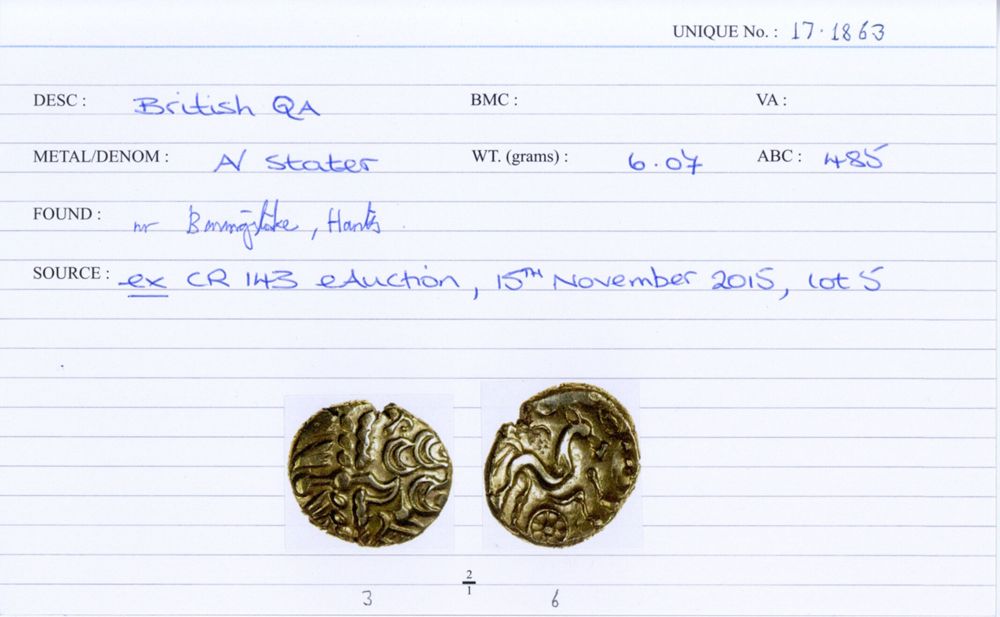 UNIQUE No. : 17.1863
DESC : British QA BMC : VA :
METAL/DENOM : AV Stater WT. (grams) : 6.07 ABC : 485
FOUND : nr Basingstoke, Hants
SOURCE : ex CR 143 eAuction, 15TH November 2015, lot 5
2
1
3 6